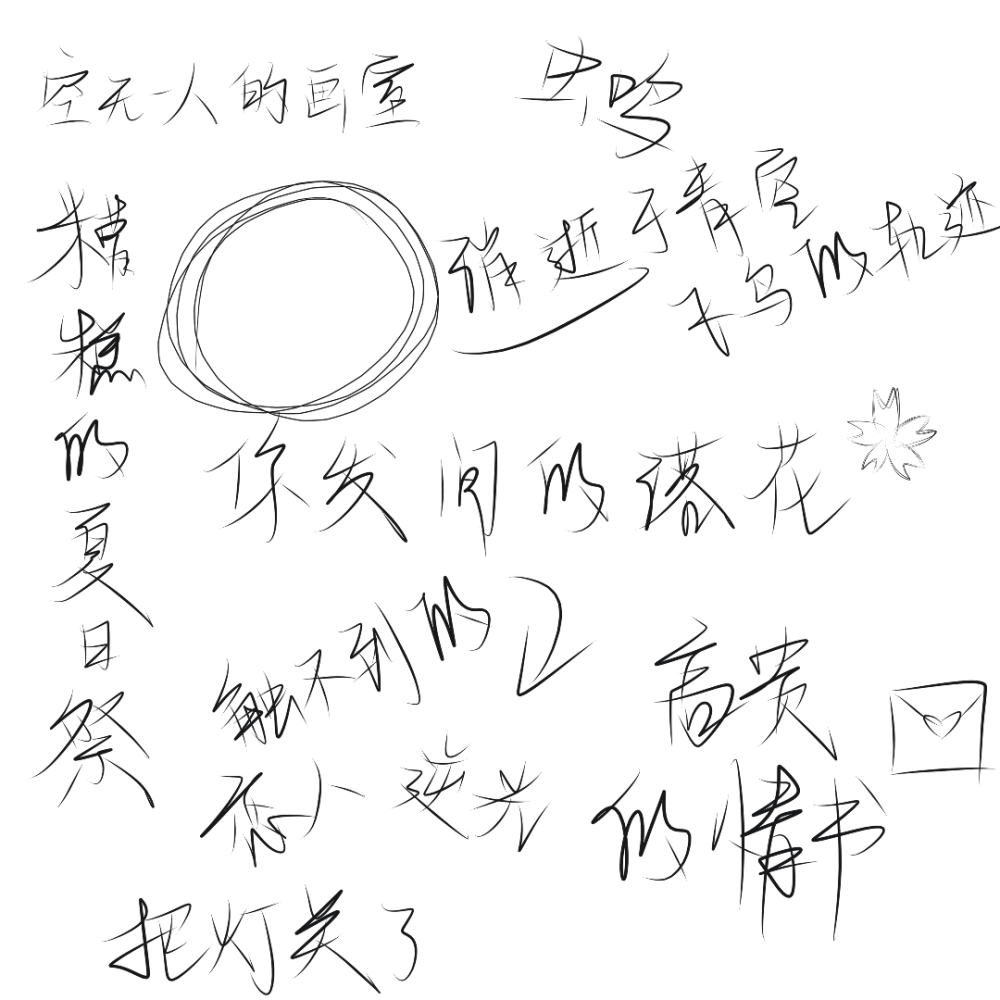 空无一人的画室
失鸣
糟糕的夏日祭
谁逝于青空
飞鸟的轨迹
你发间的落花
触不到的
恋人
逆光
高贵
的情书
把灯关了